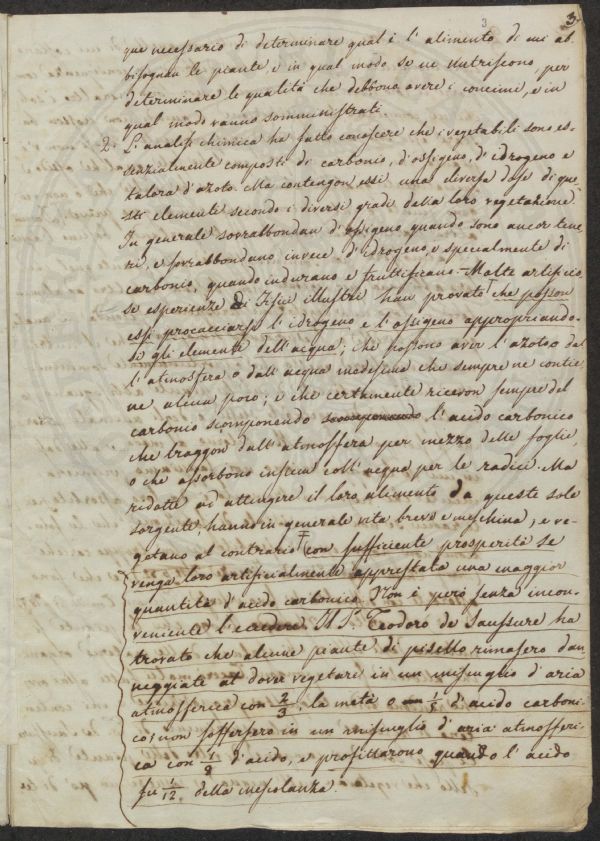 3 3.
que necessario di determinare qual è l'alimento di cui ab
bisognan le piante e in qual modo se ne nutriscono, per
determinare le qualità che debbono avere i concimi, e in
qual modo vanno somministrati.
2. L'analisi chimica ha fatto conoscere che i vegetabili sono es-
senzialmente composti di carbonio, d'ossigeno, d'idrogeno e
talora d'azoto. Ma contengon essi una diversa dose di que-
sti elementi secondo i diversi gradi della loro vegetazione.
In generale sovrabbondan d'ossigeno quando sono ancor tene-
ri, e sovrabbondano invece d'idrogeno, e specialmente di
carbonio, quando indurano e fruttificano. Molte artificio
se esperienze di Fisici illustri han provato che posson
essi procacciarsi l'idrogeno e l'ossigeno appropriando-
si gli elementi dell'acqua; che possono aver l'azoto dal
l'atmosfera o dall'acqua medesima che sempre ne contie
ne alcun poco; e che certamente ricevon sempre del
carbonio scomponendo scomponendo l'acido carbonico
che traggon dall'atmosfera per mezzo delle foglie,
o che assorbono insiem coll'acqua per le radici. Ma
ridotte ad attingere il loro alimento da queste sole
sorgenti, hanno in generale vita breve e meschina, e ve-
getano al contrario con sufficiente prosperità se
venga loro artificialmente apprestata una maggior
quantità d'acido carbonico. Non è però senza incon-
veniente l'eccedere. Il Sr. Teodoro de Saussure ha
trovato che alcune piante di pisello rimasero dan
neggiate al dover vegetare in un miscuglio d'aria
atmosferica con 2/3, la metà o 1/5 d'acido carboni
co; non soffersero in un miscuglio d'aria atmosferi-
ca con 1/8 d'acido, e profittarono quando l'acido
fu 1/12 della mescolanza